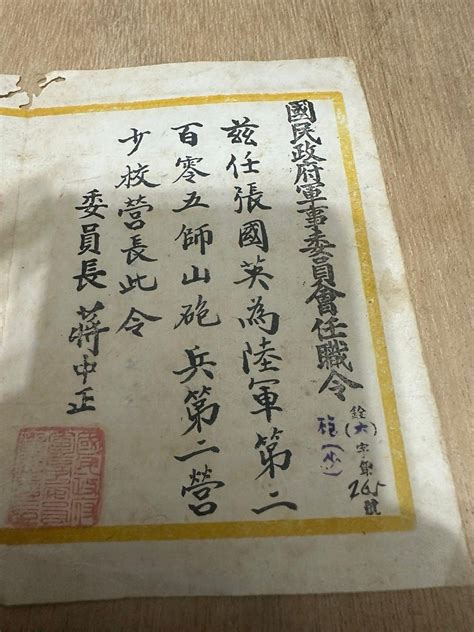 國民政府軍事委員會任職令
銓(六)字第265號
砲(少)
茲任張國英為陸軍第二
百零五師山砲兵第二營
少校營長此令
委員長蔣中正